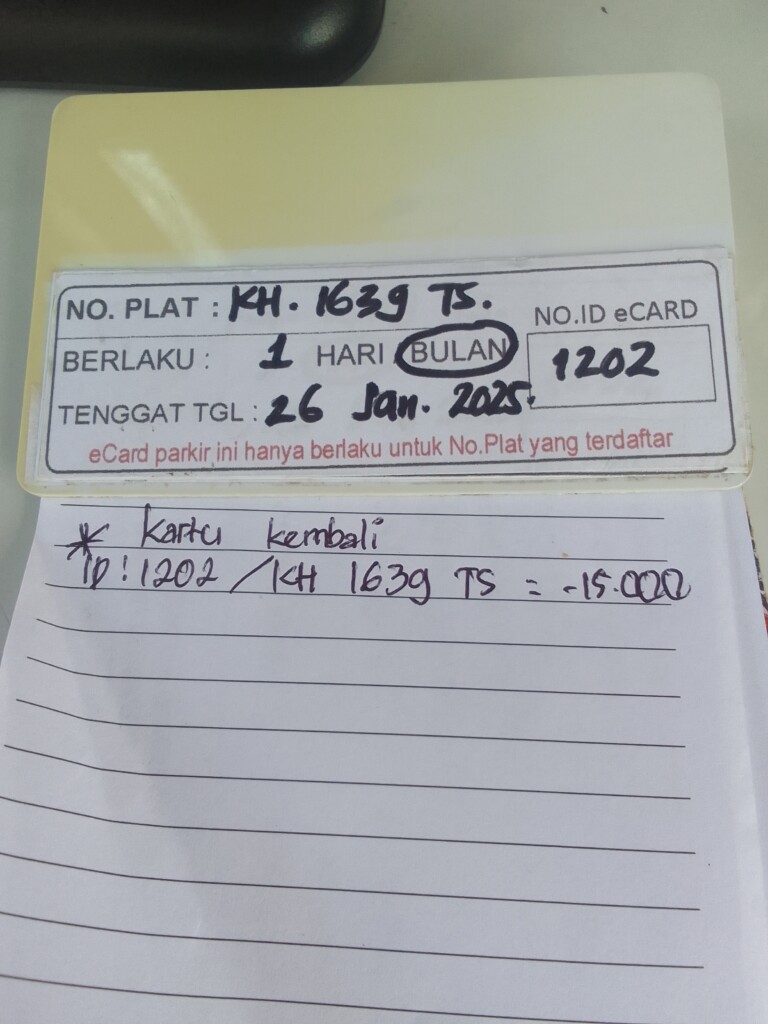 NO. PLAT : KH. 1639 TS.
NO.ID eCARD
BERLAKU : 1 HARI BULAN
1202
TENGGAT TGL : 26 Jan. 2025.
eCard parkir ini hanya berlaku untuk No.Plat yang terdaftar
* Kartu kembali
ID : 1202 / KH 1639 TS = -15.000